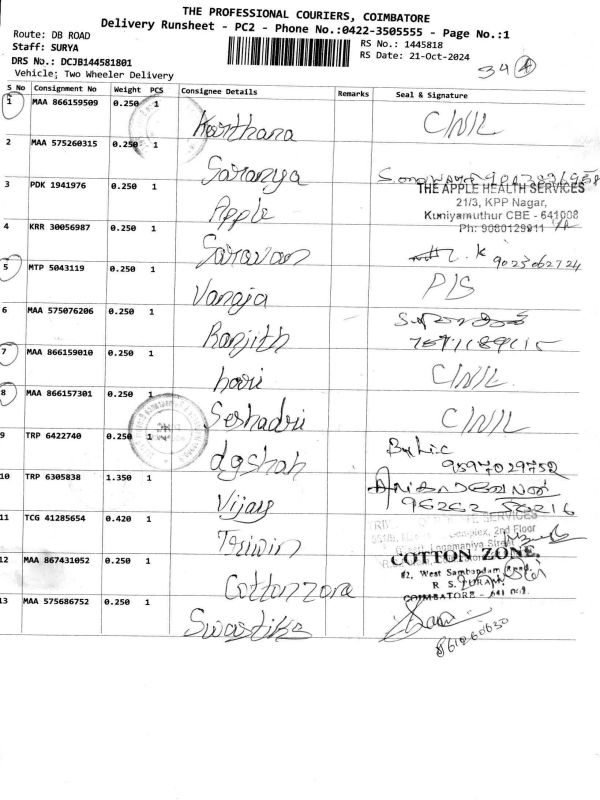 THE PROFESSIONAL COURIERS, COIMBATORE
Delivery Runsheet - PC2 - Phone No.:0422-3505555 - Page No.:1
Route: DB ROAD
Staff: SURYA
DRS No.: DCJB144581801
Vehicle; Two Wheeler Delivery
RS No.: 1445818
RS Date: 21-Oct-2024
34 4
S No Consignment No Weight PCS Consignee Details Remarks Seal & Signature
1 MAA 866159509 0.250 1 Keerthana C/N/L
2 MAA 575260315 0.250 1 Saranya
3 PDK 1941976 0.250 1 Apple
THE APPLE HEALTH SERVICES
21/3, KPP Nagar,
Kuniyamuthur CBE - 641008
Ph: 9080129911
4 KRR 30056987 0.250 1 Saravan
9023062724
5 MTP 5043119 0.250 1 Vanaja P/S
6 MAA 575076206 0.250 1 Ranjith
7 MAA 866159010 0.250 1 hari C/N/L
8 MAA 866157301 0.250 1 Seshadri C/N/L
9 TRP 6422740 0.250 1 dgshah
9597029752
10 TRP 6305838 1.350 1 Vijay
11 TCG 41285654 0.420 1
2nd Floor
12 MAA 867431052 0.250 1 Cottonzone
COTTON ZONE,
#2, West Sambandam Road,
R. S. PURAM,
COIMBATORE - 641 002.
13 MAA 575686752 0.250 1 Swastika